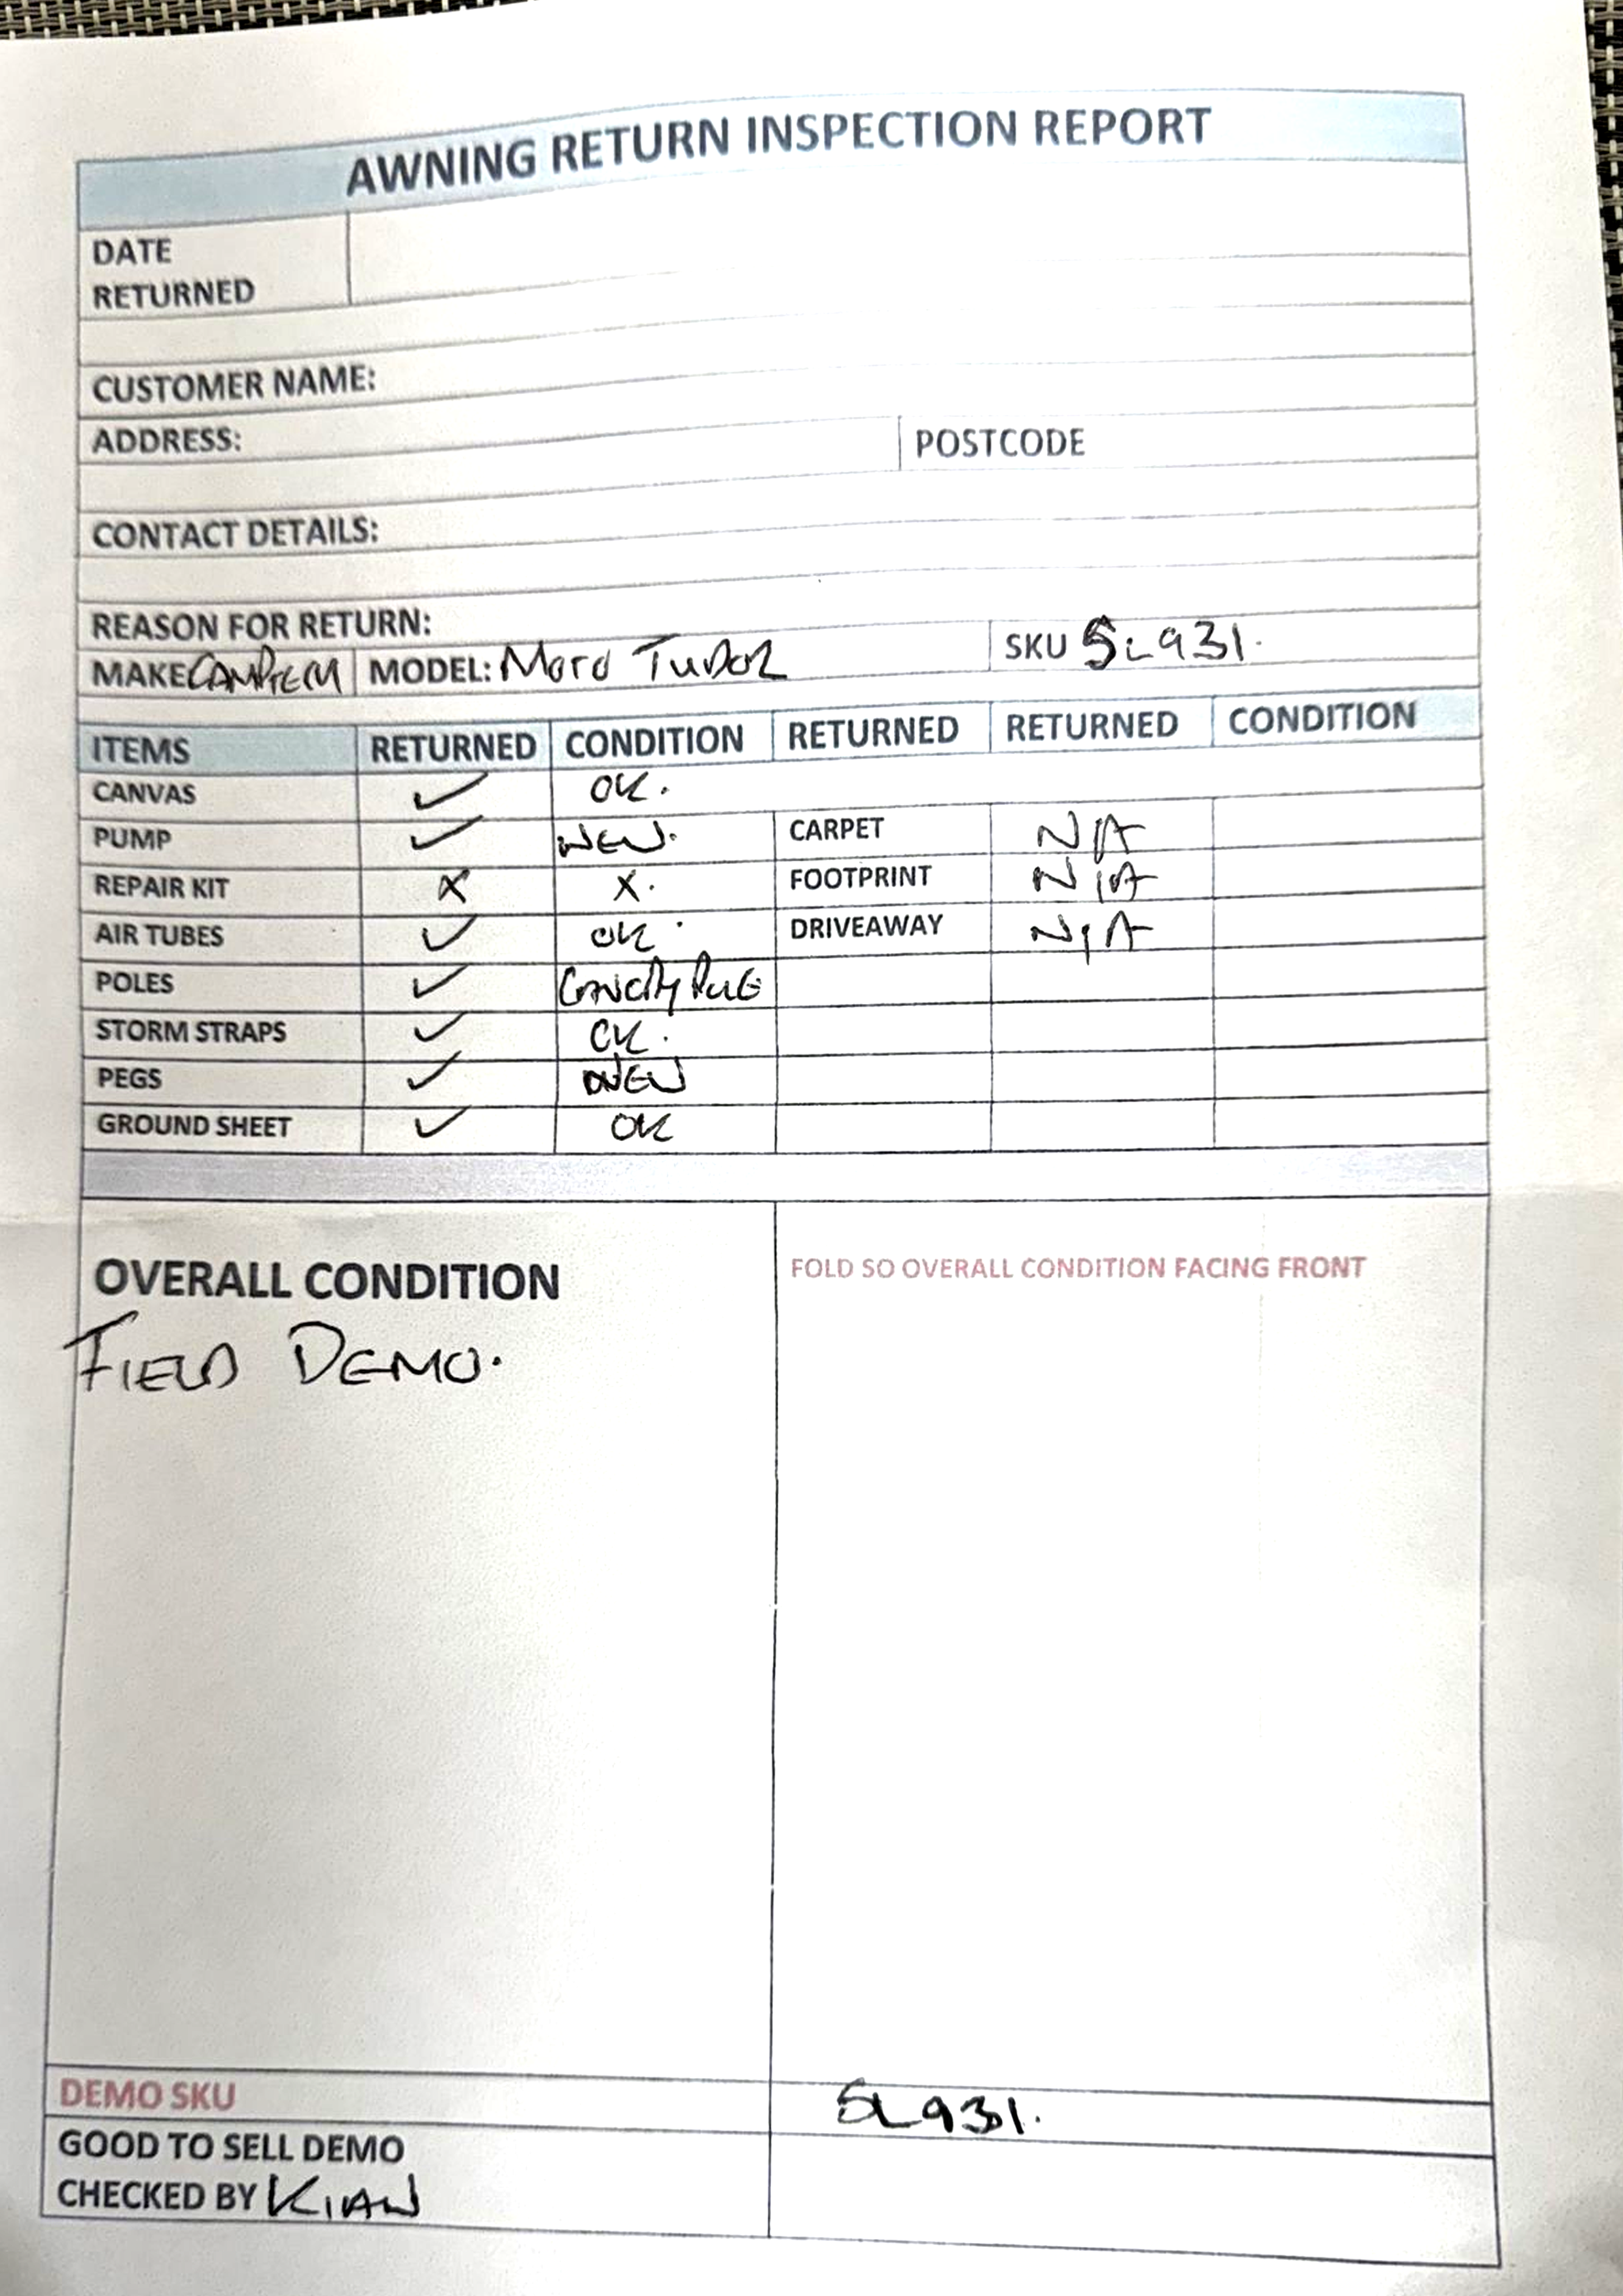 AWNING RETURN INSPECTION REPORT
DATE RETURNED
CUSTOMER NAME:
ADDRESS: POSTCODE
CONTACT DETAILS:
REASON FOR RETURN:
MAKE MODEL: MOTO TUDOR SKU SL931.
ITEMS RETURNED CONDITION RETURNED RETURNED CONDITION
CANVAS ✓ OK.
PUMP ✓ NEW. CARPET N/A
REPAIR KIT X X. FOOTPRINT N/A
AIR TUBES ✓ OK. DRIVEAWAY N/A
POLES ✓ CANOPY POLE
STORM STRAPS ✓ OK.
PEGS ✓ NEW
GROUND SHEET ✓ OK
OVERALL CONDITION FOLD SO OVERALL CONDITION FACING FRONT
FIELD DEMO.
DEMO SKU SL931.
GOOD TO SELL DEMO
CHECKED BY KIAN